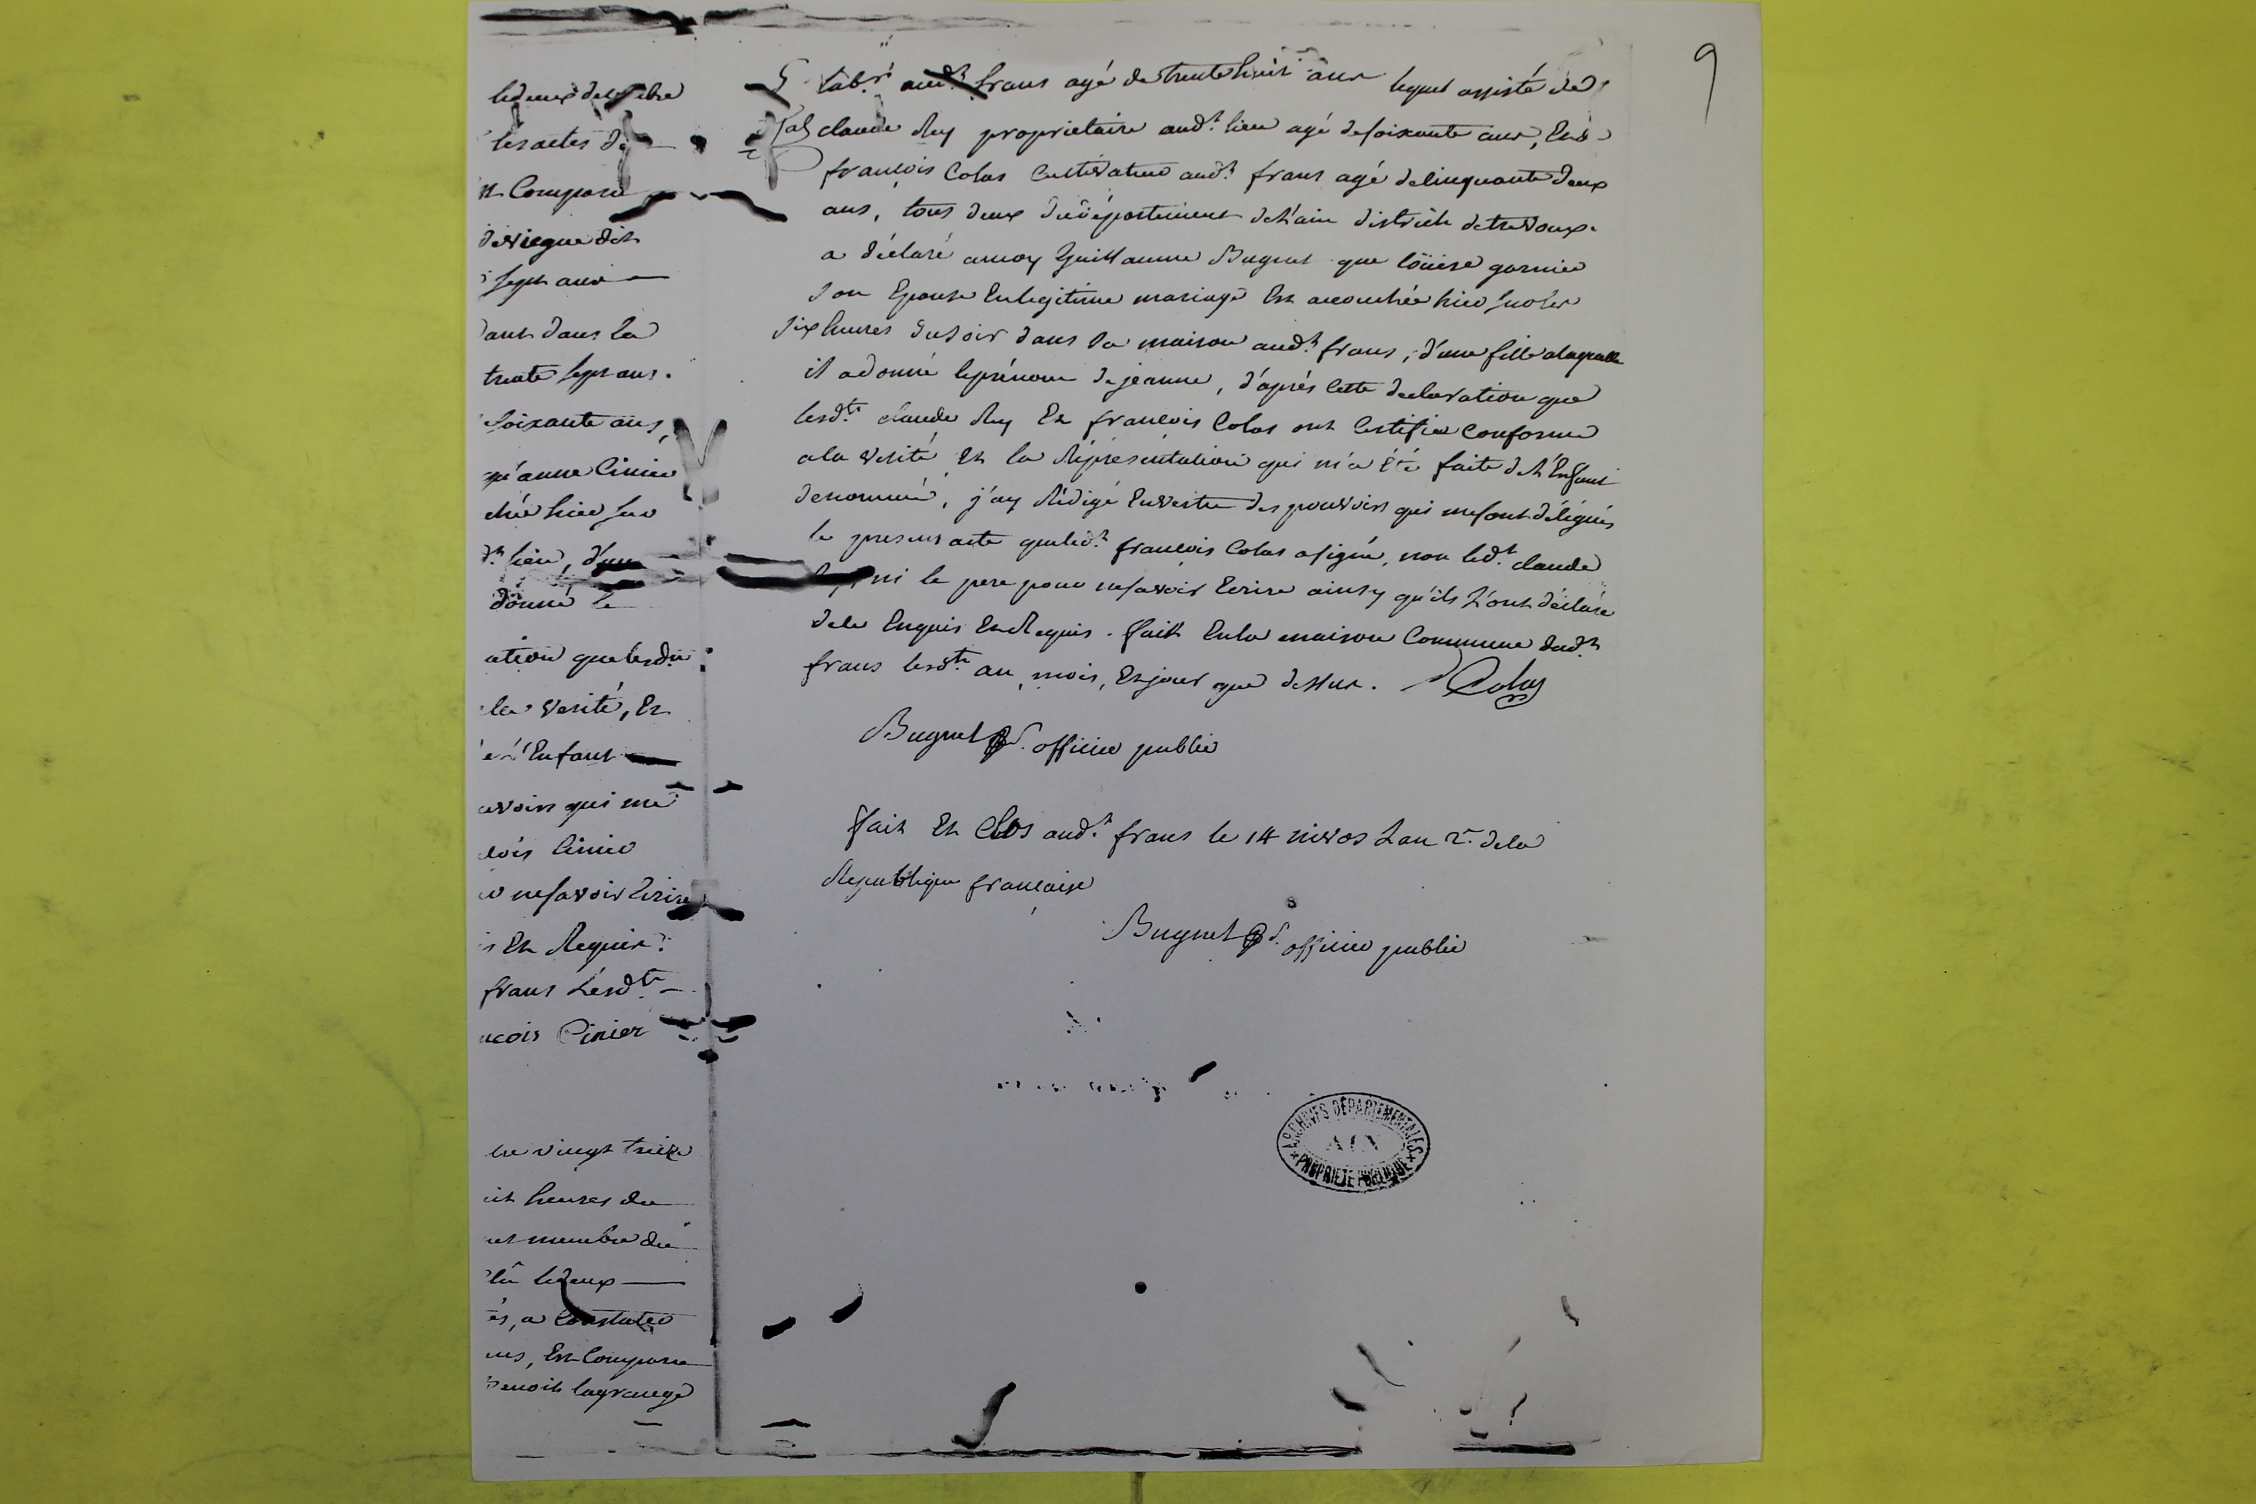 9
le deux de
les actes de
Et Compare
de viegue dit
sept ans
dans la
trente sept ans.
soixante ans,
anne Cinier
chée hier sur
dt. lieu, d'une
donné le
ation que lesdit
la verité, Et
l'Enfant
voirs qui me
cois Cinier
nesavoir Ecrire
Et Requis.
frans Lesdts.
ncois Cinier
vingt treize
heures du
membre du
le deux
és, a Constater
Est Compare
Benoit lagrange
labr. audt. frans agé de trente huit ans lequel assisté de
claude Rey proprietaire audt. lieu agé de soixante ans, Et de
françois Colas Cultivateur audt. frans agé de Cinquante deux
ans, tous deux du département de L'ain district de trevoux.
a déclaré a moy Guillaume Bugnet que loüise garnier
Son Epouse En legitime mariage Est acouchée hier sur les
six heures du soir dans sa maison audt. frans, d'une fille a laquelle
il a donné le prénom de jeanne, d'aprés cette declaration que
lesdts. claude Rey Et françois Colas ont Certifiée Conforme
a la verité Et la Réprésentation qui m'a Été faite de L'Enfant
denommé, j'ay Rédigé En vertu des pouvoirs qui me sont délégués
le present acte que ledt. françois Colas a signé, non ledt. claude
ni le pere pour ne savoir Ecrire ainsy qu'ils L'ont déclaré
de ce Enquis Et Requis. fait En la maison Commune dudt.
frans lesdts. an, mois, Et jour que dessus. Colas
Bugnet officier public
fait Et Clos audt. frans le 14 nivos L'an 2e. de la
Republique françaisse
Bugnet officier public
ARCHIVES DÉPARTEMENTALES
AIN
PROPRIÉTÉ PUBLIQUE